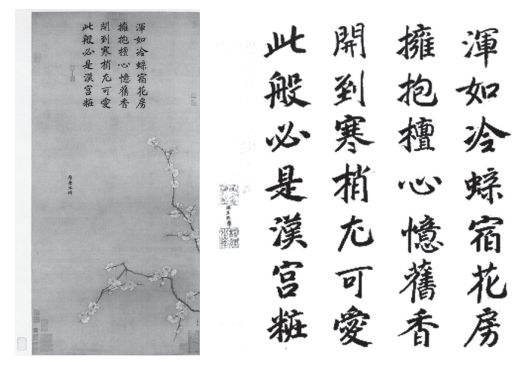 渾如冷蝶宿花房
擁抱檀心憶舊香
開到寒梢尤可愛
此般必是漢宮粧
渾如冷蝶宿花房
擁抱檀心憶舊香
開到寒梢尤可愛
此般必是漢宮粧
層疊冰綃